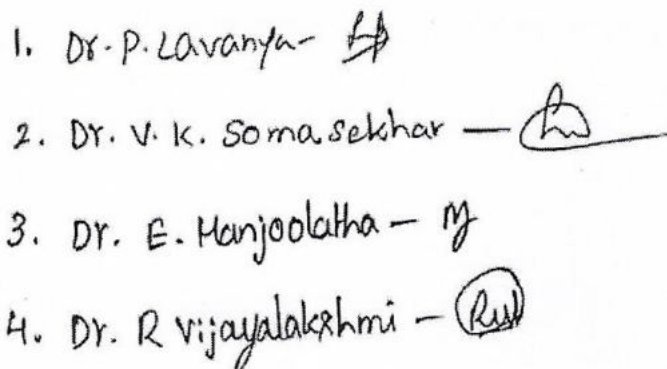 1. Dr. P. Lavanya -
2. Dr. V. K. Somasekhar —
3. Dr. E. Manjoolatha —
4. Dr. R Vijayalakshmi —